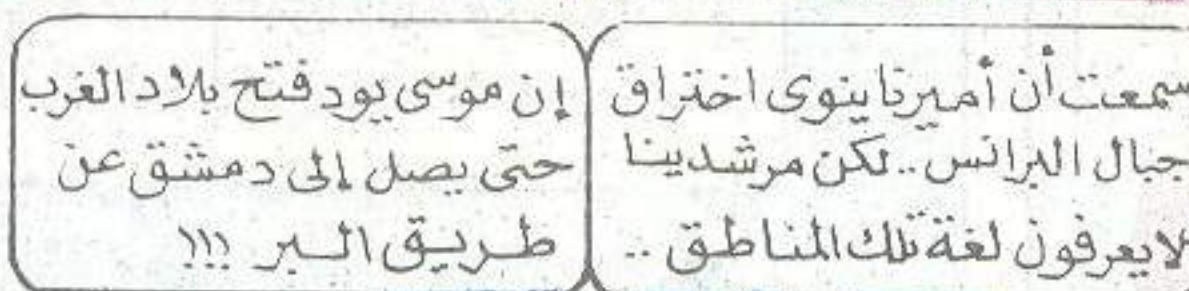 سمعت أن أميرنا ينوى اختراق
جبال البرانس.. لكن مرشدينا
لا يعرفون لغة تلك المناطق ..
إن موسى يود فتح بلاد الغرب
حتى يصل إلى دمشق عن
طريق البر !!!